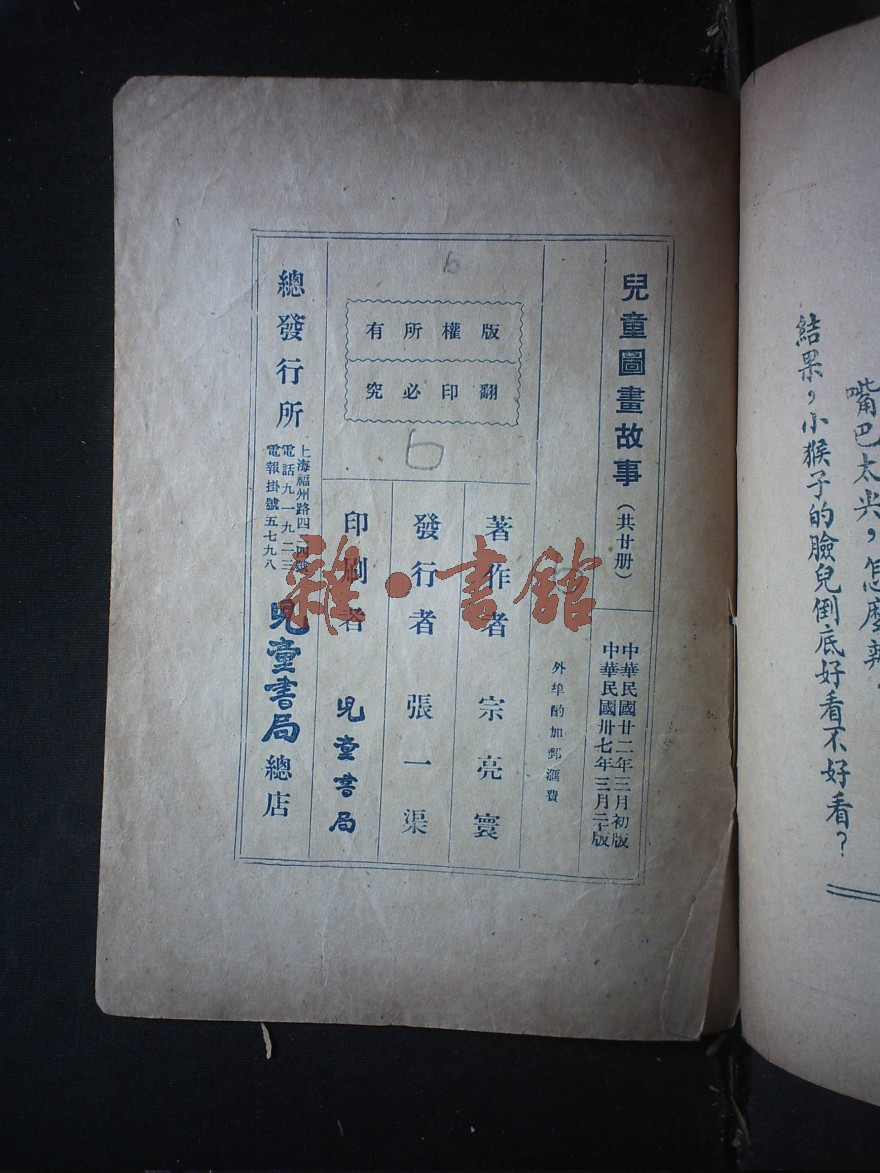 嘴巴太尖，怎麼辦
結果，小猴子的臉兒倒底好看不好看？
兒童圖畫故事（共廿册）
中華民國廿二年三月初版
中華民國卅七年三月二十版
外埠酌加郵滙費
版權所有
翻印必究
6
6
著作者 宗亮寰
發行者 張一渠
印刷者 兒童書局
總發行所
上海福州路四
電話九一九二三
電報掛號五七九八
兒童書局總店
雜·書館